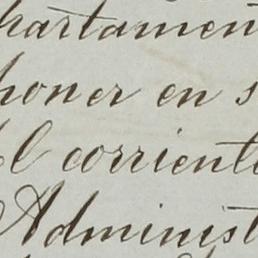 partamen
poner en s
el corriente
Administ